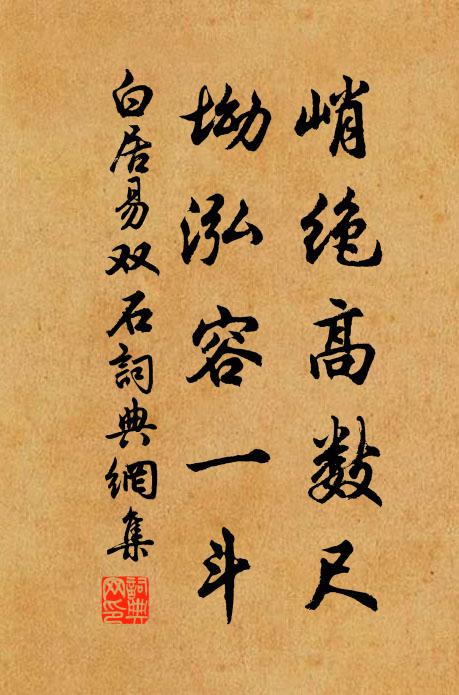 峭绝高数尺
坳泓容一斗
白居易双石詞典網集
詞典网印